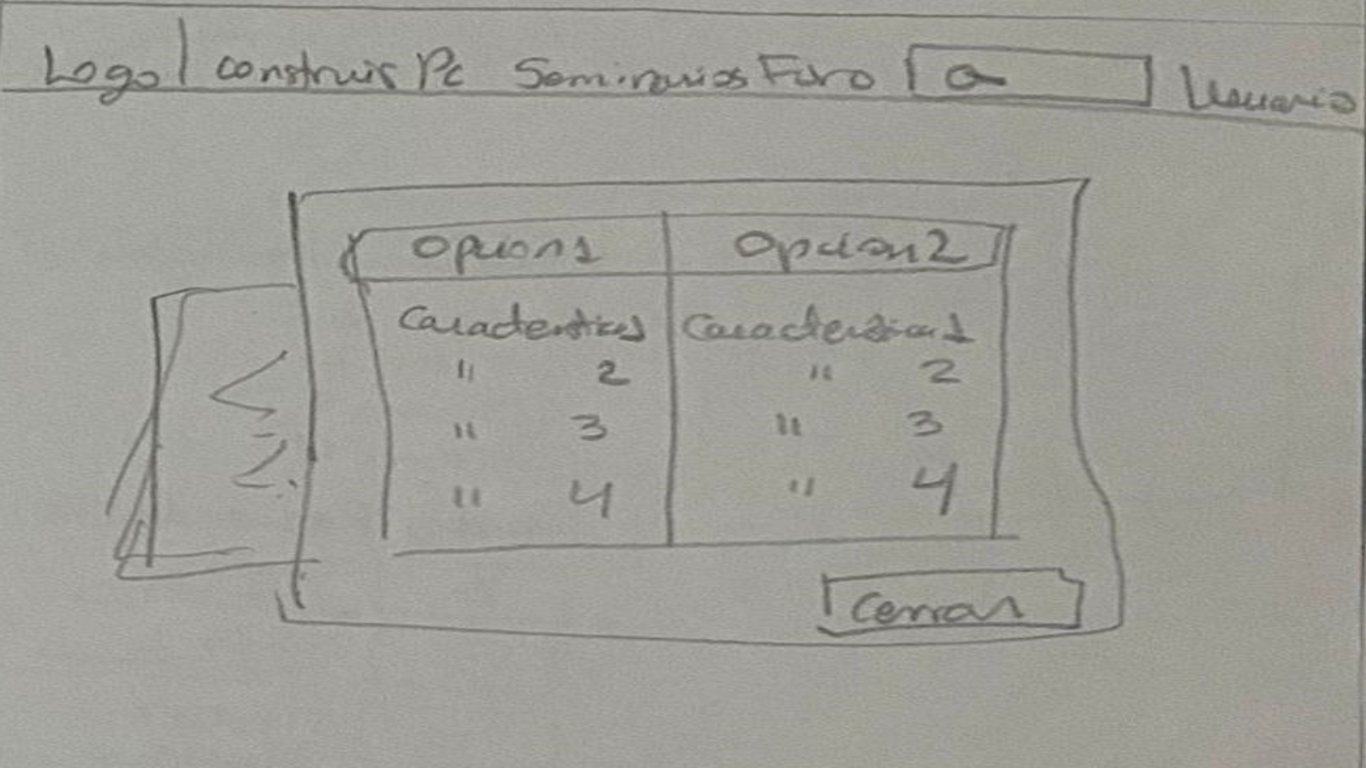 Logo | construir Pc Seminarios Foro Usuario
Opcion1 Opcion2
Caracteristicas Caracteristica 1
" 2 " 2
" 3 " 3
" 4 " 4
Cerrar